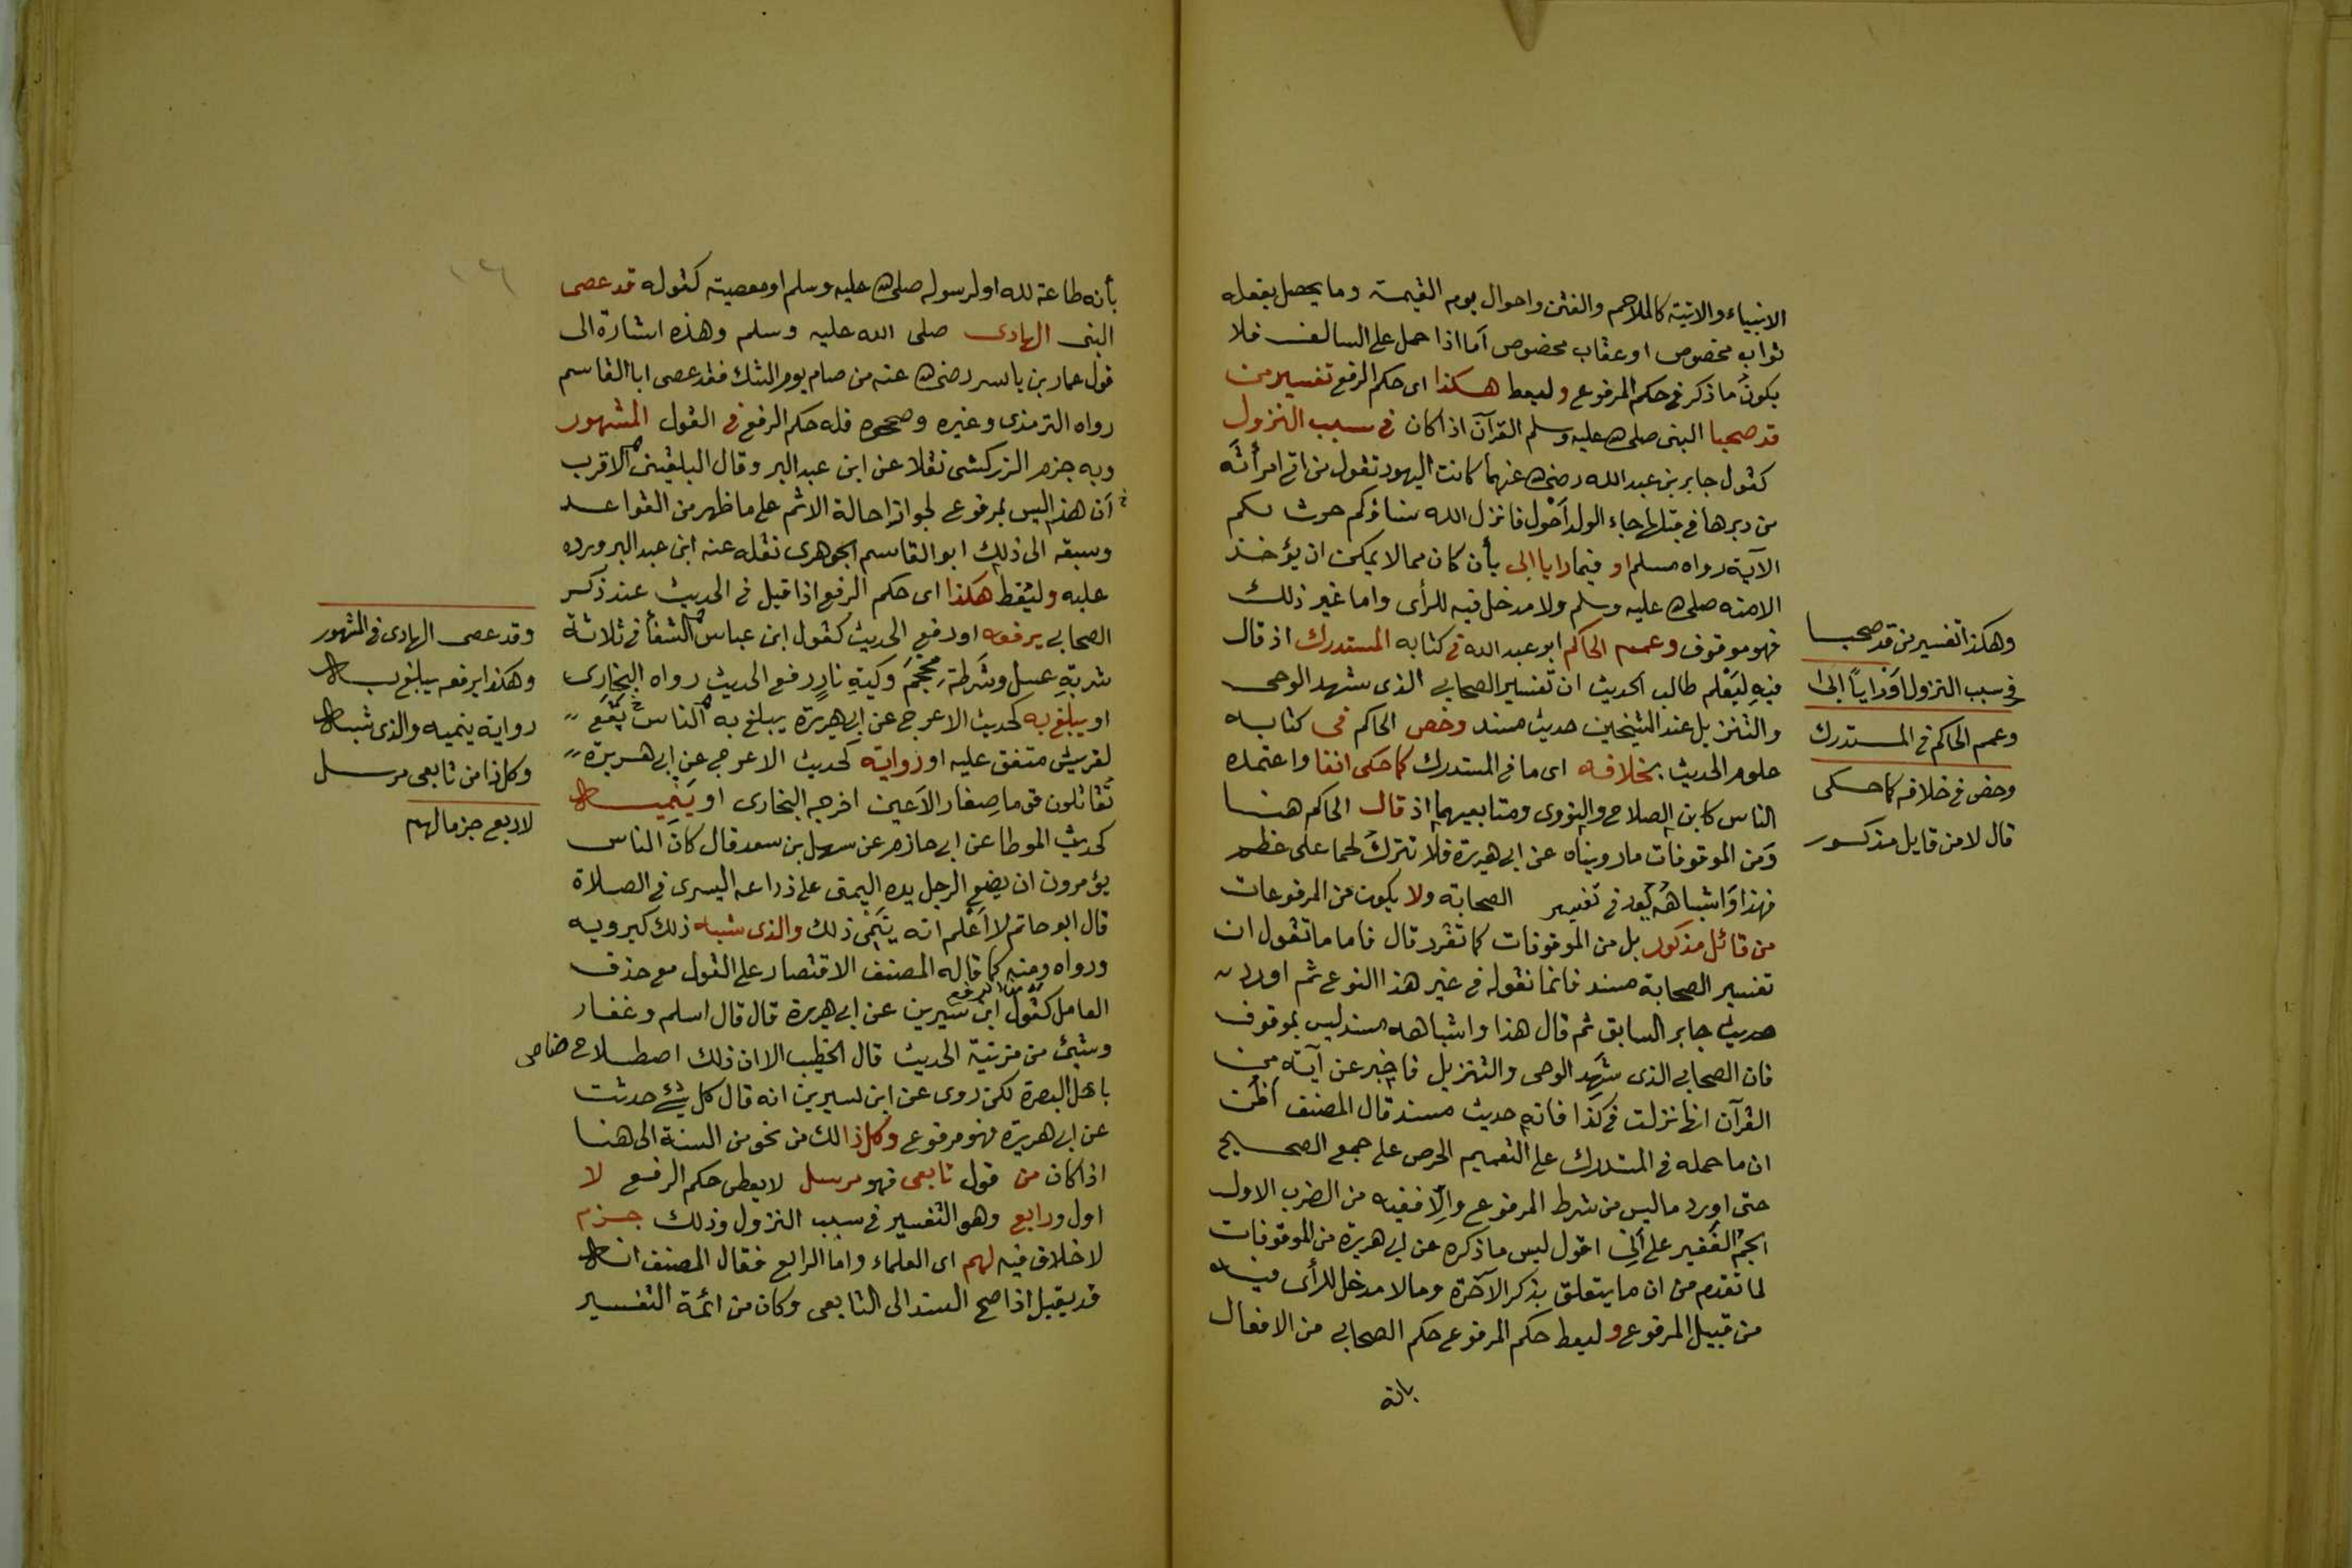 الانبياء والاتية كالملاحم والفتن واحوال يوم القيمة وما يحصل بفعله
ثواب مخصوص او عقاب مخصوص اما اذا حمل على السالف فلا
يكون ما ذكر في حكم المرفوع وليعط هكذا اى حكم الرفع تفسير من
قد صحبا النبى صلى الله عليه وسلم القرآن اذا كان في سبب النزول
كقول جابر بن عبد الله رضى الله عنهما كانت اليهود تقول من اتى امرأته
من دبرها في قبلها جاء الولد أحول فانزل الله نساؤكم حرث لكم
الآية رواه مسلم او فيما رايا ابى بأن كان مما لا يمكن ان يؤخذ
الا منه صلى الله عليه وسلم ولا مدخل فيه للرأى واما غير ذلك
فهو موقوف وعمم الحاكم ابو عبد الله في كتابه المستدرك اذ قال
فيه ليعلم طالب الحديث ان تفسير الصحابي الذى شهد الوحى
والتنزيل عند الشيخين حديث مسند وخص الحاكم في كتابه
علوم الحديث بخلافه اى ما في المستدرك كما حكى انفا واعتمده
الناس كابن الصلاح والنووى ومتابعيهما اذ قال الحاكم هنا
ومن الموقوفات ما رويناه عن ابي هريرة فلا تترك لحما على عظم
فهذا واشباهه يعد في تفسير الصحابة ولا يكون من المرفوعات
من قائل مذكور بل من الموقوفات كما تقرر قال فاما ما تقول ان
تفسير الصحابة مسند فانما نقوله في غير هذا النوع ثم اورد
حديث جابر السابق ثم قال هذا واشباهه مسند ليس بموقوف
فان الصحابي الذى شهد الوحى والتنزيل فاخبر عن آية من
القرآن انها نزلت في كذا فانه حديث مسند قال المصنف أظن
ان ما حمله في المستدرك على التعميم الحرص على جمع الصحيح
حتى اورد ما ليس من شرط المرفوع والا ففيه من الضرب الاول
الجم الغفير على أني اقول ليس ما ذكره عن ابي هريرة من الموقوفات
لما تقدم من ان ما يتعلق بذكر الآخرة وما لا مدخل للرأى فيه
من قبيل المرفوع وليعط حكم المرفوع حكم الصحابي من الافعال
بانه
وهكذا تفسير من قد صحبا
في سبب النزول او رايا ابى
وعمم الحاكم في المستدرك
وخص في خلافه كما حكى
قال لا من قايل مذكور
١٦
بأنه طاعة لله او لرسوله صلى الله عليه وسلم او معصية كقوله قد عصى
النبى الهادى صلى الله عليه وسلم وهذه اشارة الى
قول عمار بن ياسر رضى الله عنه من صام يوم الشك فقد عصى ابا القاسم
رواه الترمذى وغيره وصححوه فله حكم الرفع في القول المشهور
وبه جزم الزركشى نقلا عن ابن عبد البر وقال البلقيني الاقرب
أن هذا ليس بمرفوع لجواز احالة الاثم على ما ظهر من القواعد
وسبقه الى ذلك ابو القاسم الجوهرى نقله عنه ابن عبد البر ورده
عليه وليعط هكذا اى حكم الرفع اذا قيل في الحديث عند ذكر
الصحابي يرفعه او رفع الحديث كقول ابن عباس الشفأ في ثلاثة
شربة عسل وشرطة محجم وكية نار رفع الحديث رواه البخارى
او يبلغ به كحديث الاعرج عن ابي هريرة يبلغ به الناس تبع
لقريش متفق عليه او رواية كحديث الاعرج عن ابي هريرة
تقاتلون قوما صغار الاعين اخرجه البخارى او ينميه
كحديث الموطا عن ابي حازم عن سهل بن سعد قال كان الناس
يؤمرون ان يضع الرجل يده اليمنى على ذراعه اليسرى في الصلاة
قال ابو حاتم لا أعلم انه ينمى ذلك والذى شبه ذلك كيرويه
ورواه ومنه كما قاله المصنف الاقتصار على القول مع حذف
العامل كقول ابن سيرين عن ابي هريرة قال قال اسلم وغفار
وشئ من مزينة الحديث قال الخطيب الا ان ذلك اصطلاح خاص
باهل البصرة لكن روى عن ابن سيرين انه قال كل شئ حدثت
عن ابي هريرة فهو مرفوع وكل ذا لك من نحو من السنة الى هنا
اذا كان من قول تابعى فهو مرسل لا يعطى حكم الرفع لا
اول ورابع وهو التفسير في سبب النزول وذلك جزم
لا خلاف فيه لهم اى العلماء واما الرابع فقال المصنف انه
قد يقبل اذا صح السند الى التابعى وكان من ائمة التفسير
وقد عصى الهادى في المشهور
وهكذا يرفعه يبلغ به
رواية ينميه والذى شبه
وكل ذا من تابعى مرسل
لا رابع جزما لهم